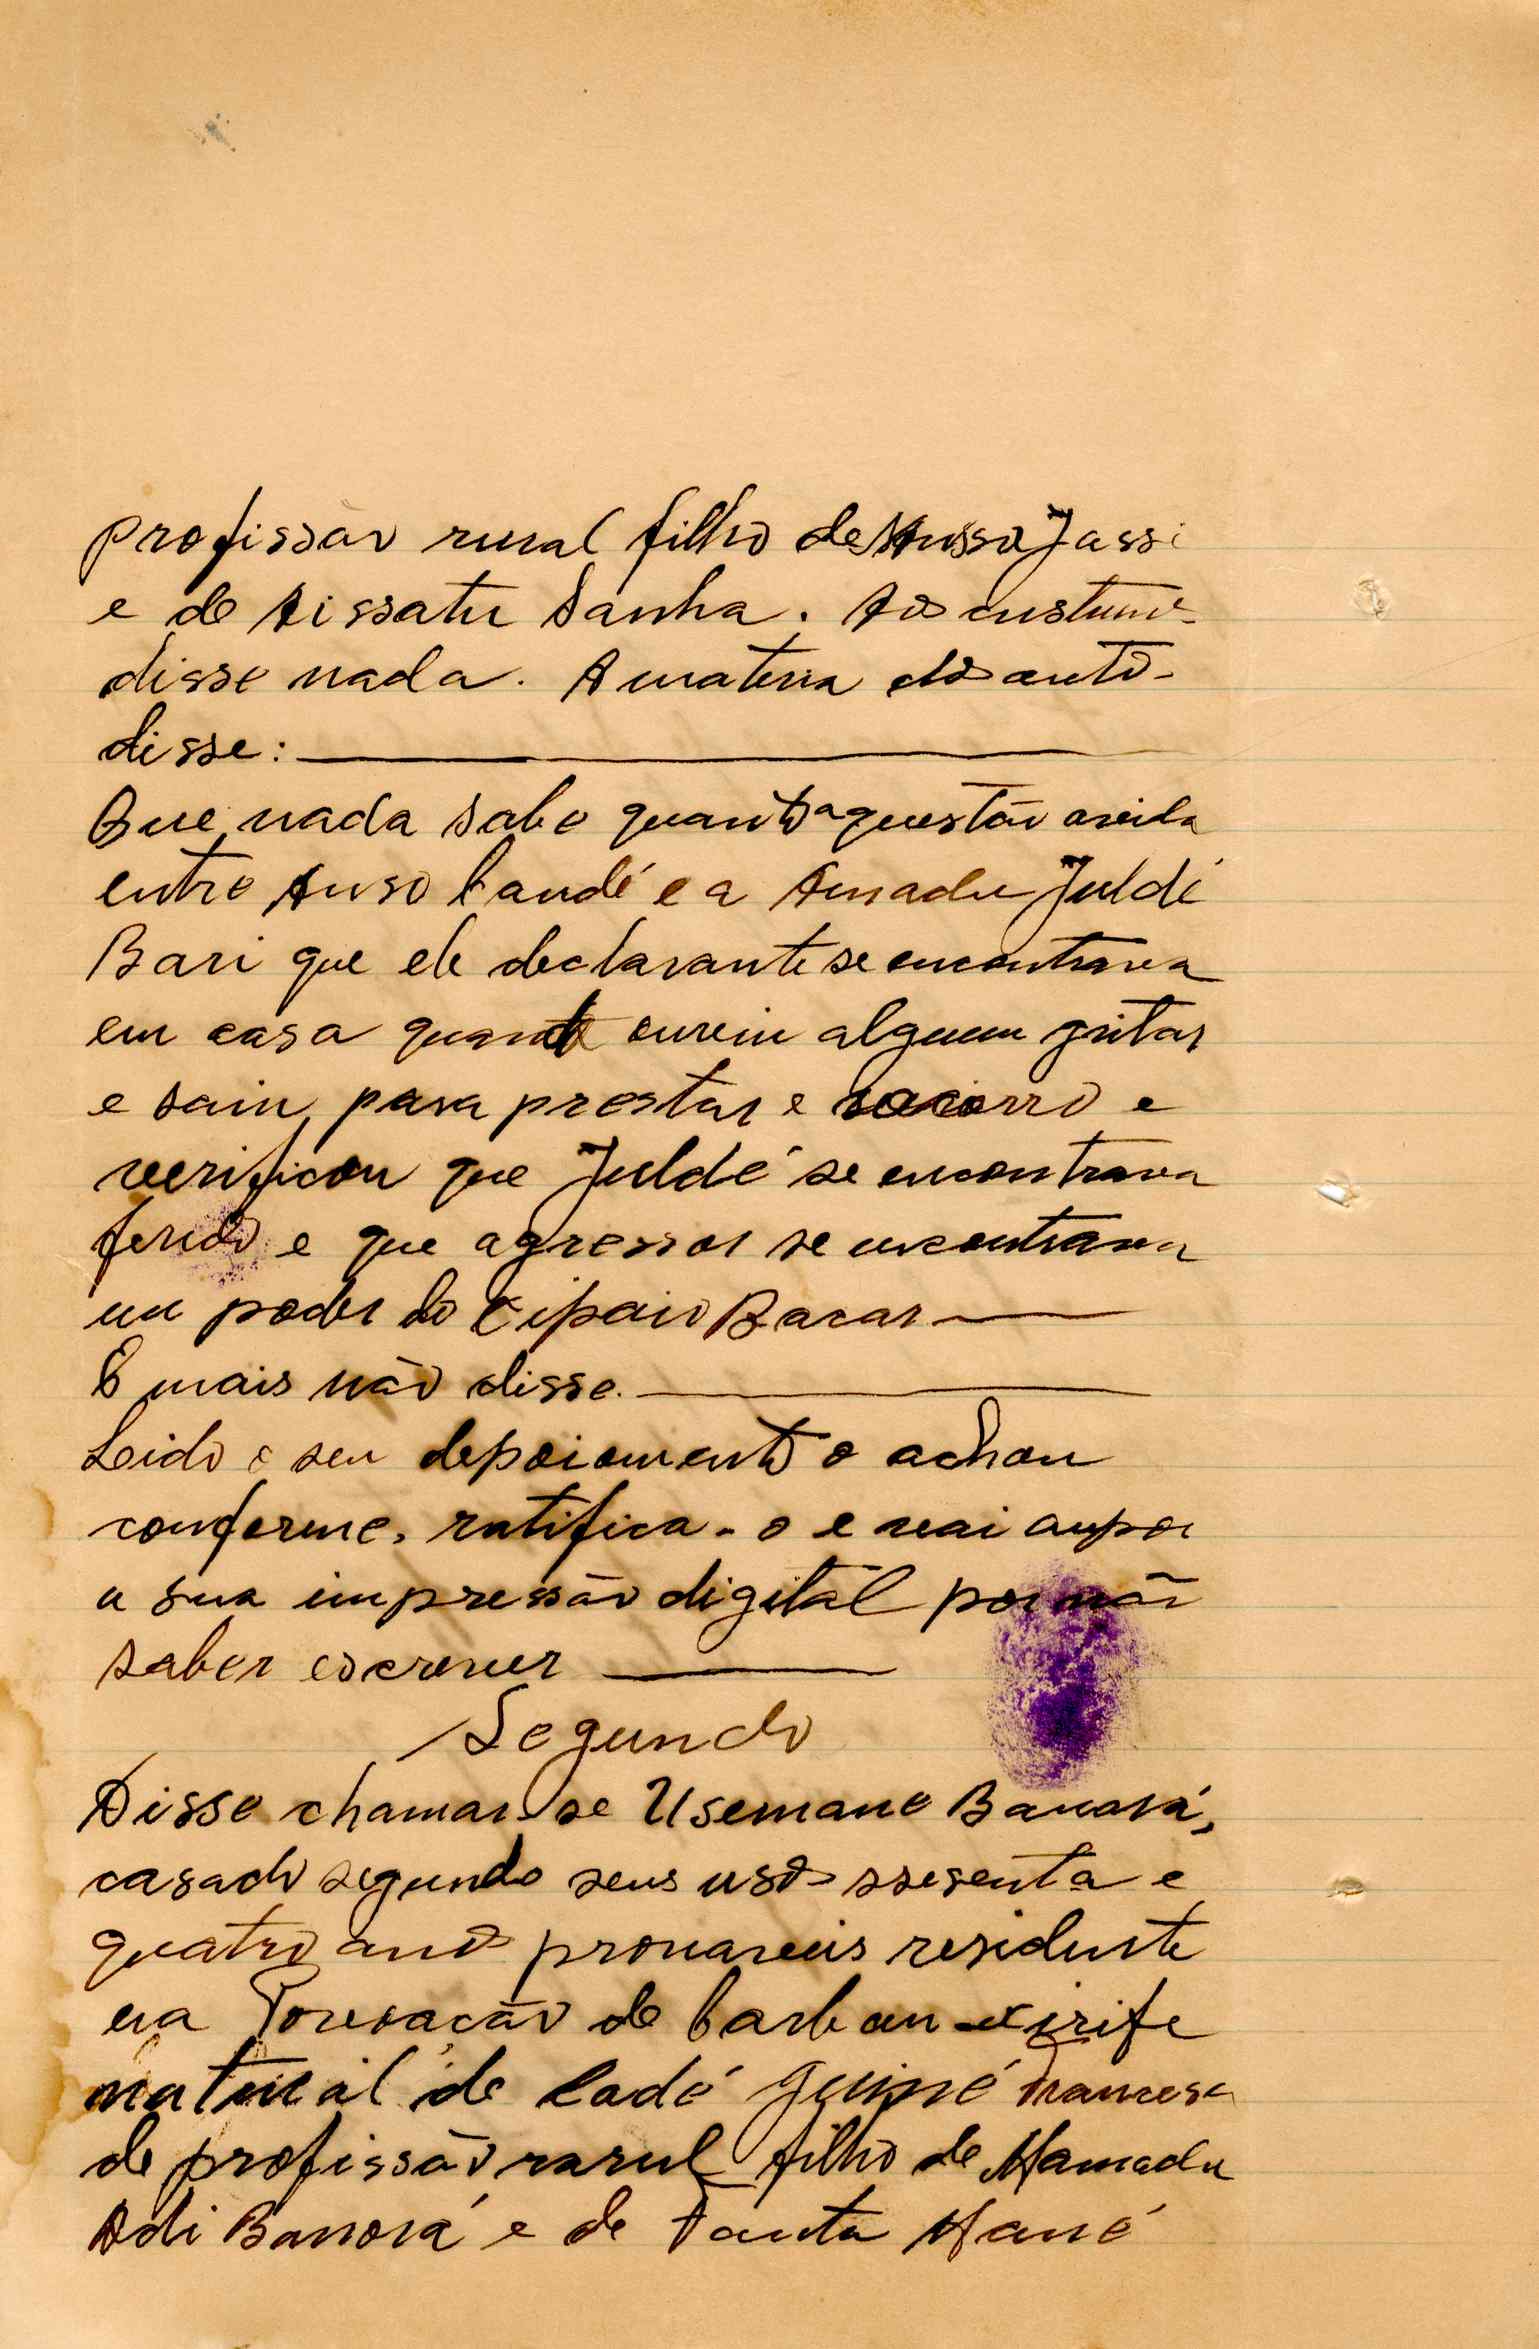 profissão rural filho de Mussa Jassi
e de Aissatu Sanha. Aos custume-
disse nada. A materia dos auto-
disse:
Que nada sabe quanto a questão avida
entre Auso Candé e a Amadu Juldé
Bari que ele declarante se encontrava
em casa quando ouviu alguem gritar
e saiu para prestar e socorro e
verificou que Juldé se encontrava
ferido e que agressor se encontrava
em poder do Cipaio Bacar
E mais não disse.
Leido o seu depoiomento o achou
conforme, ratifica-o e vai aupor
a sua impressão digital por não
saber escrever
Segundo
Disse chamar-se Usemane Banorá,
casado segundo seus usos ssesenta e
quatro anos provaveis residente
na Povoacão de Carbam-xirife
natural de Cadé Guiné Francesa
de profissão rarul filho de Mamadu
Adi Banorá e de Fanta Mané